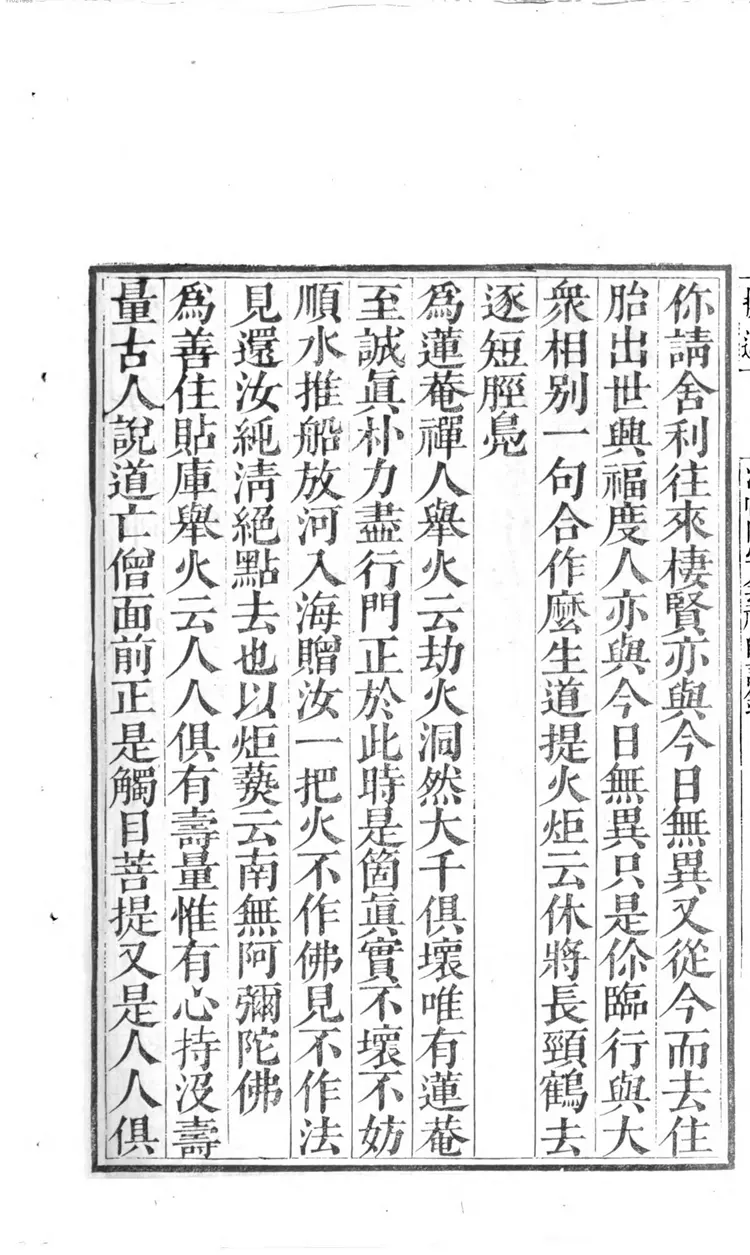 你請舍利往來棲賢亦與今日無異又從今而去住
胎出世興福度人亦與今日無異只是你臨行與大
衆相別一句合作麽生道提火炬云休將長頸鶴去
逐短脛鳧
爲蓮菴禪人舉火云劫火洞然大千俱壞唯有蓮菴
至誠眞朴力盡行門正於此時是箇眞實不壞不妨
順水推船放河入海贈汝一把火不作佛見不作法
見還汝純淸絕點去也以炬爇云南無阿彌陀佛
爲善住貼庫舉火云人人俱有壽量惟有心持没壽
量古人說道亡僧面前正是觸目菩提又是人人俱